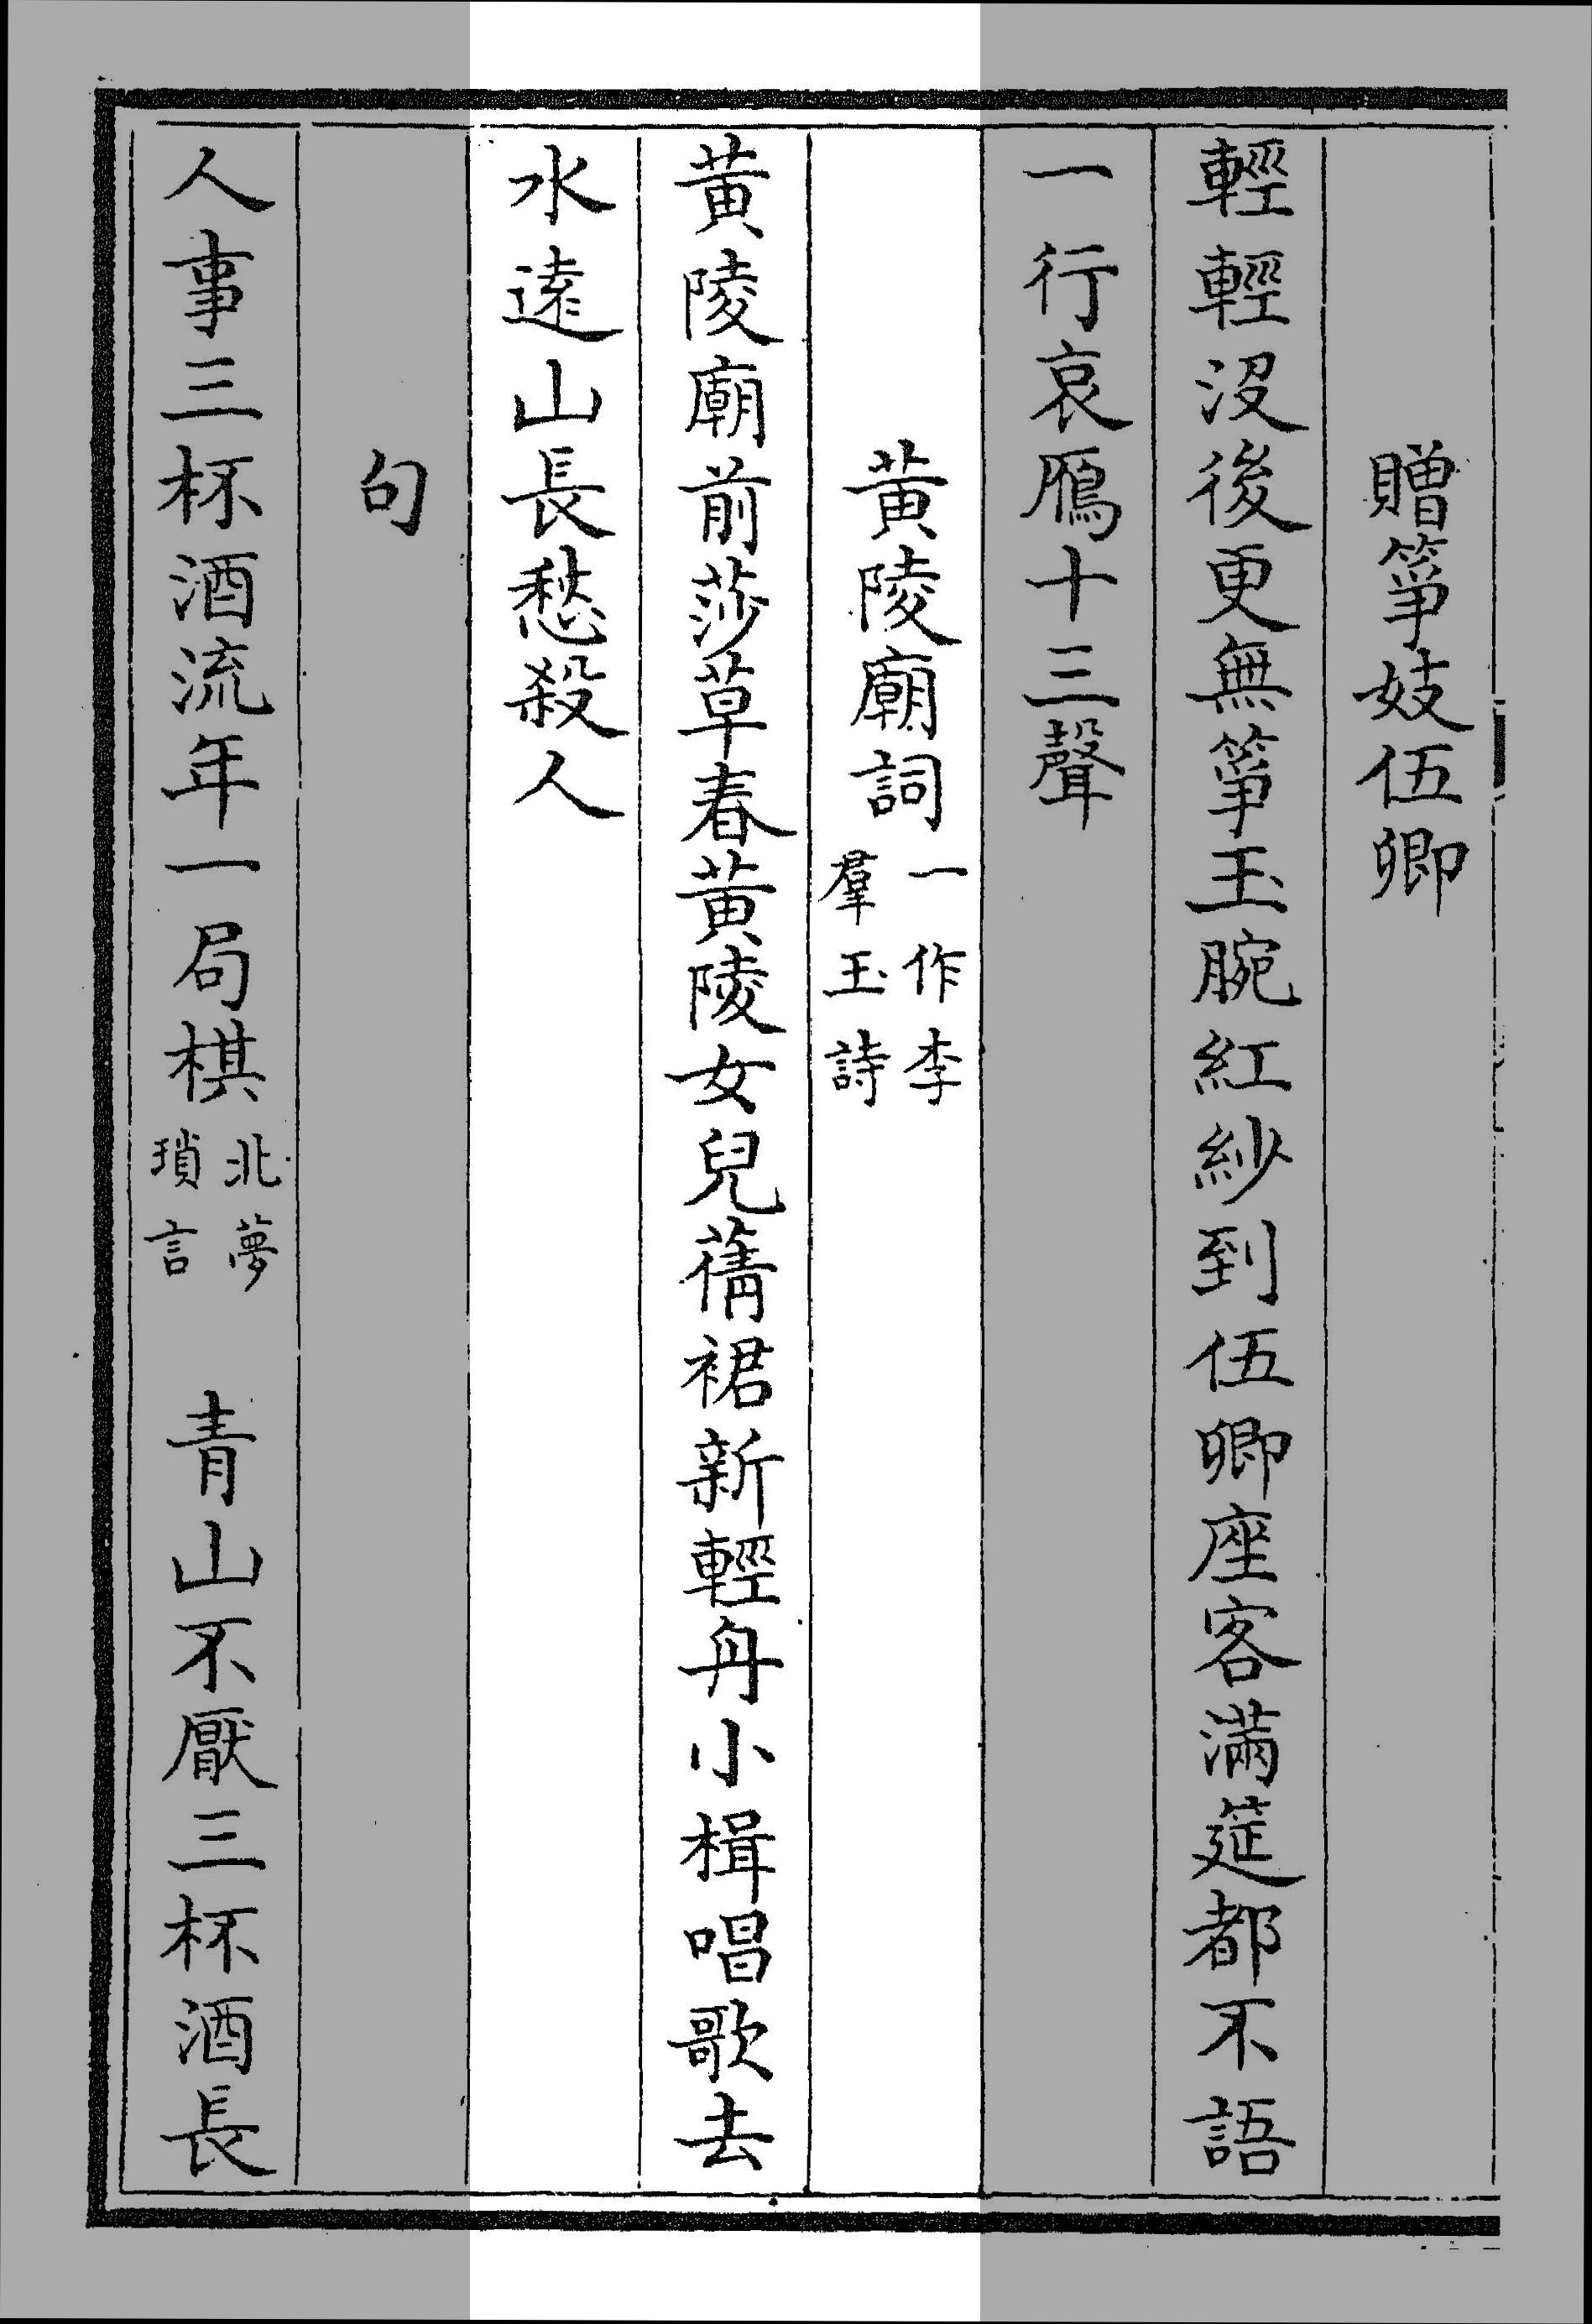 贈箏妓伍卿
輕輕沒後更無箏玉腕紅紗到伍卿座客滿筵都不語
一行哀鴈十三聲
黃陵廟詞一作李羣玉詩
黃陵廟前莎草春黃陵女兒蒨裙新輕舟小楫唱歌去
水遠山長愁殺人
句
人事三杯酒流年一局棋北夢瑣言 青山不厭三杯酒長